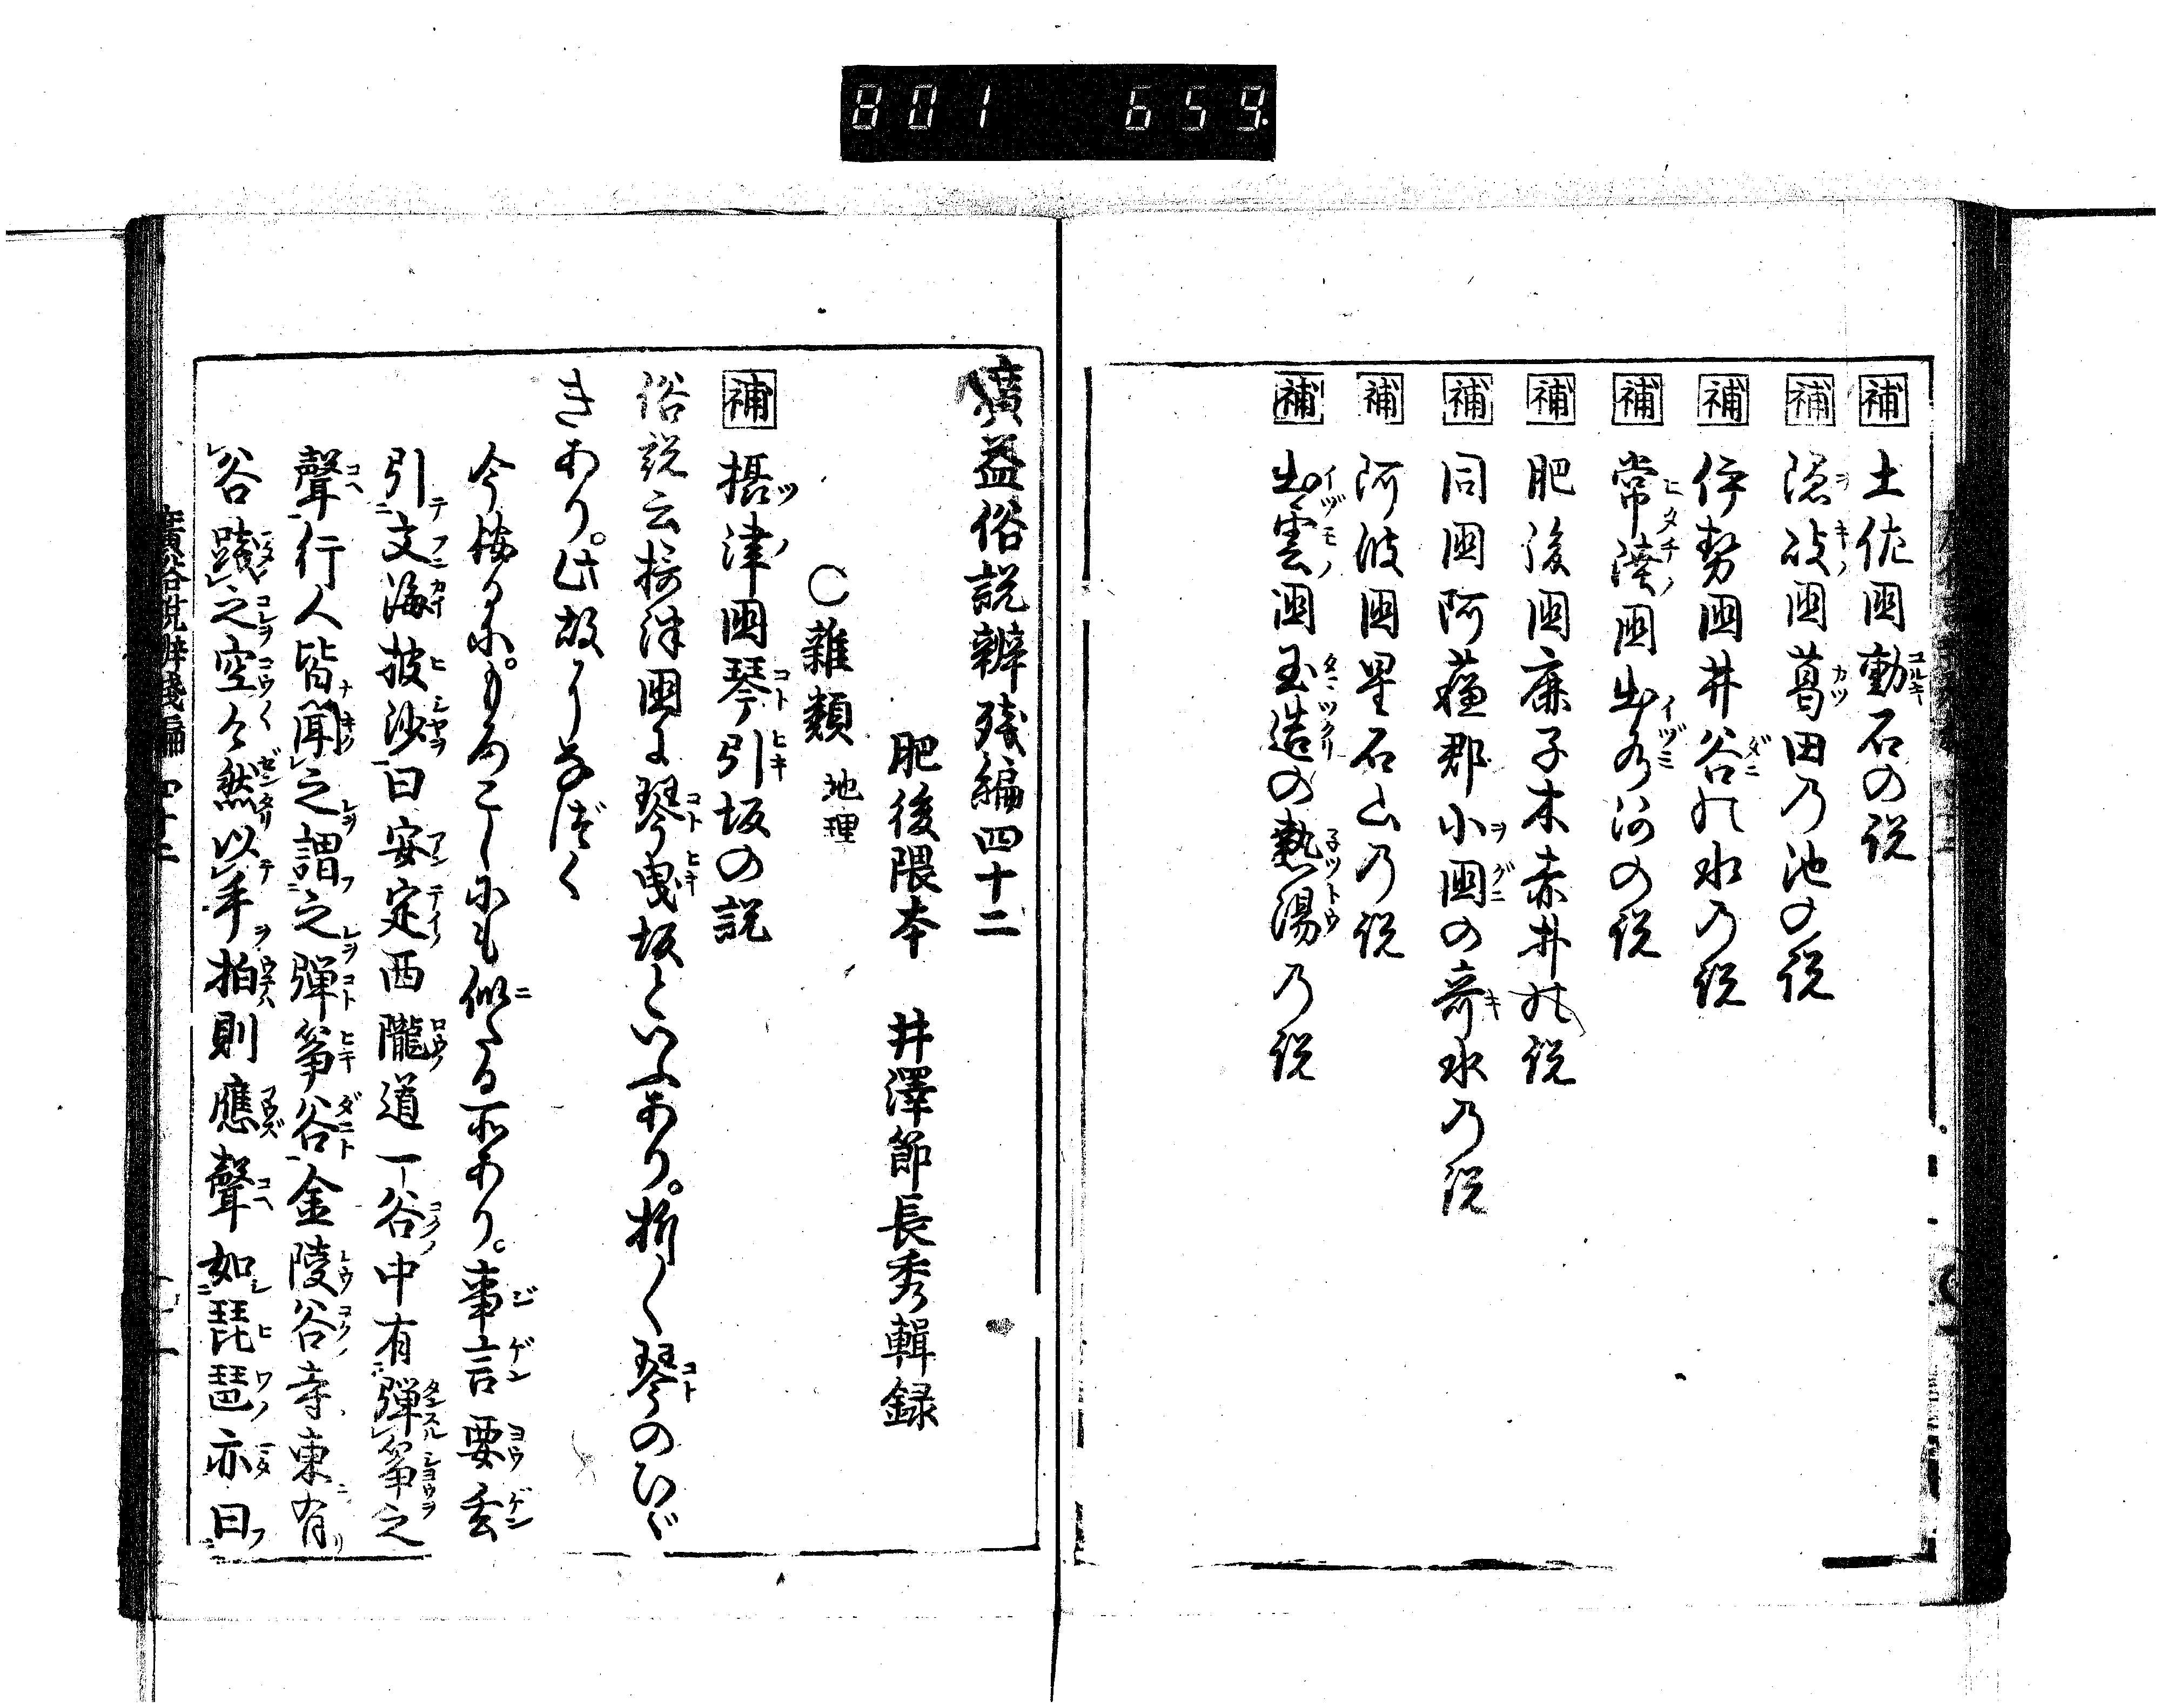 801 659.
補 土佐國動石の説
補 隠岐國葛田乃池の説
補 伊勢國井谷の水乃説
補 常陸國出水河の説
補 肥後國廉子木赤井の説
補 同國阿蘓郡小國の竒水乃説
補 阿波國星石山乃説
補 出雲國玉造の熱湯乃説
廣益俗説辨残編四十二
肥後隈本 井澤節長秀輯録
○雜類 地理
補 摂津國琴引坂の説
俗説云摂津國に琴曳坂といふあり。折〱琴のひゞ
きあり。此故に名づく
今按るに。もろこしにも似たる所あり。事言要玄
引文海披沙曰安定西隴道一谷中有弾筝之
聲行人皆聞之謂之弾筝谷金陵谷寺東有
谷踐之空々然以手拍則應聲如琵琶亦曰
廣俗説辨残編 四十二